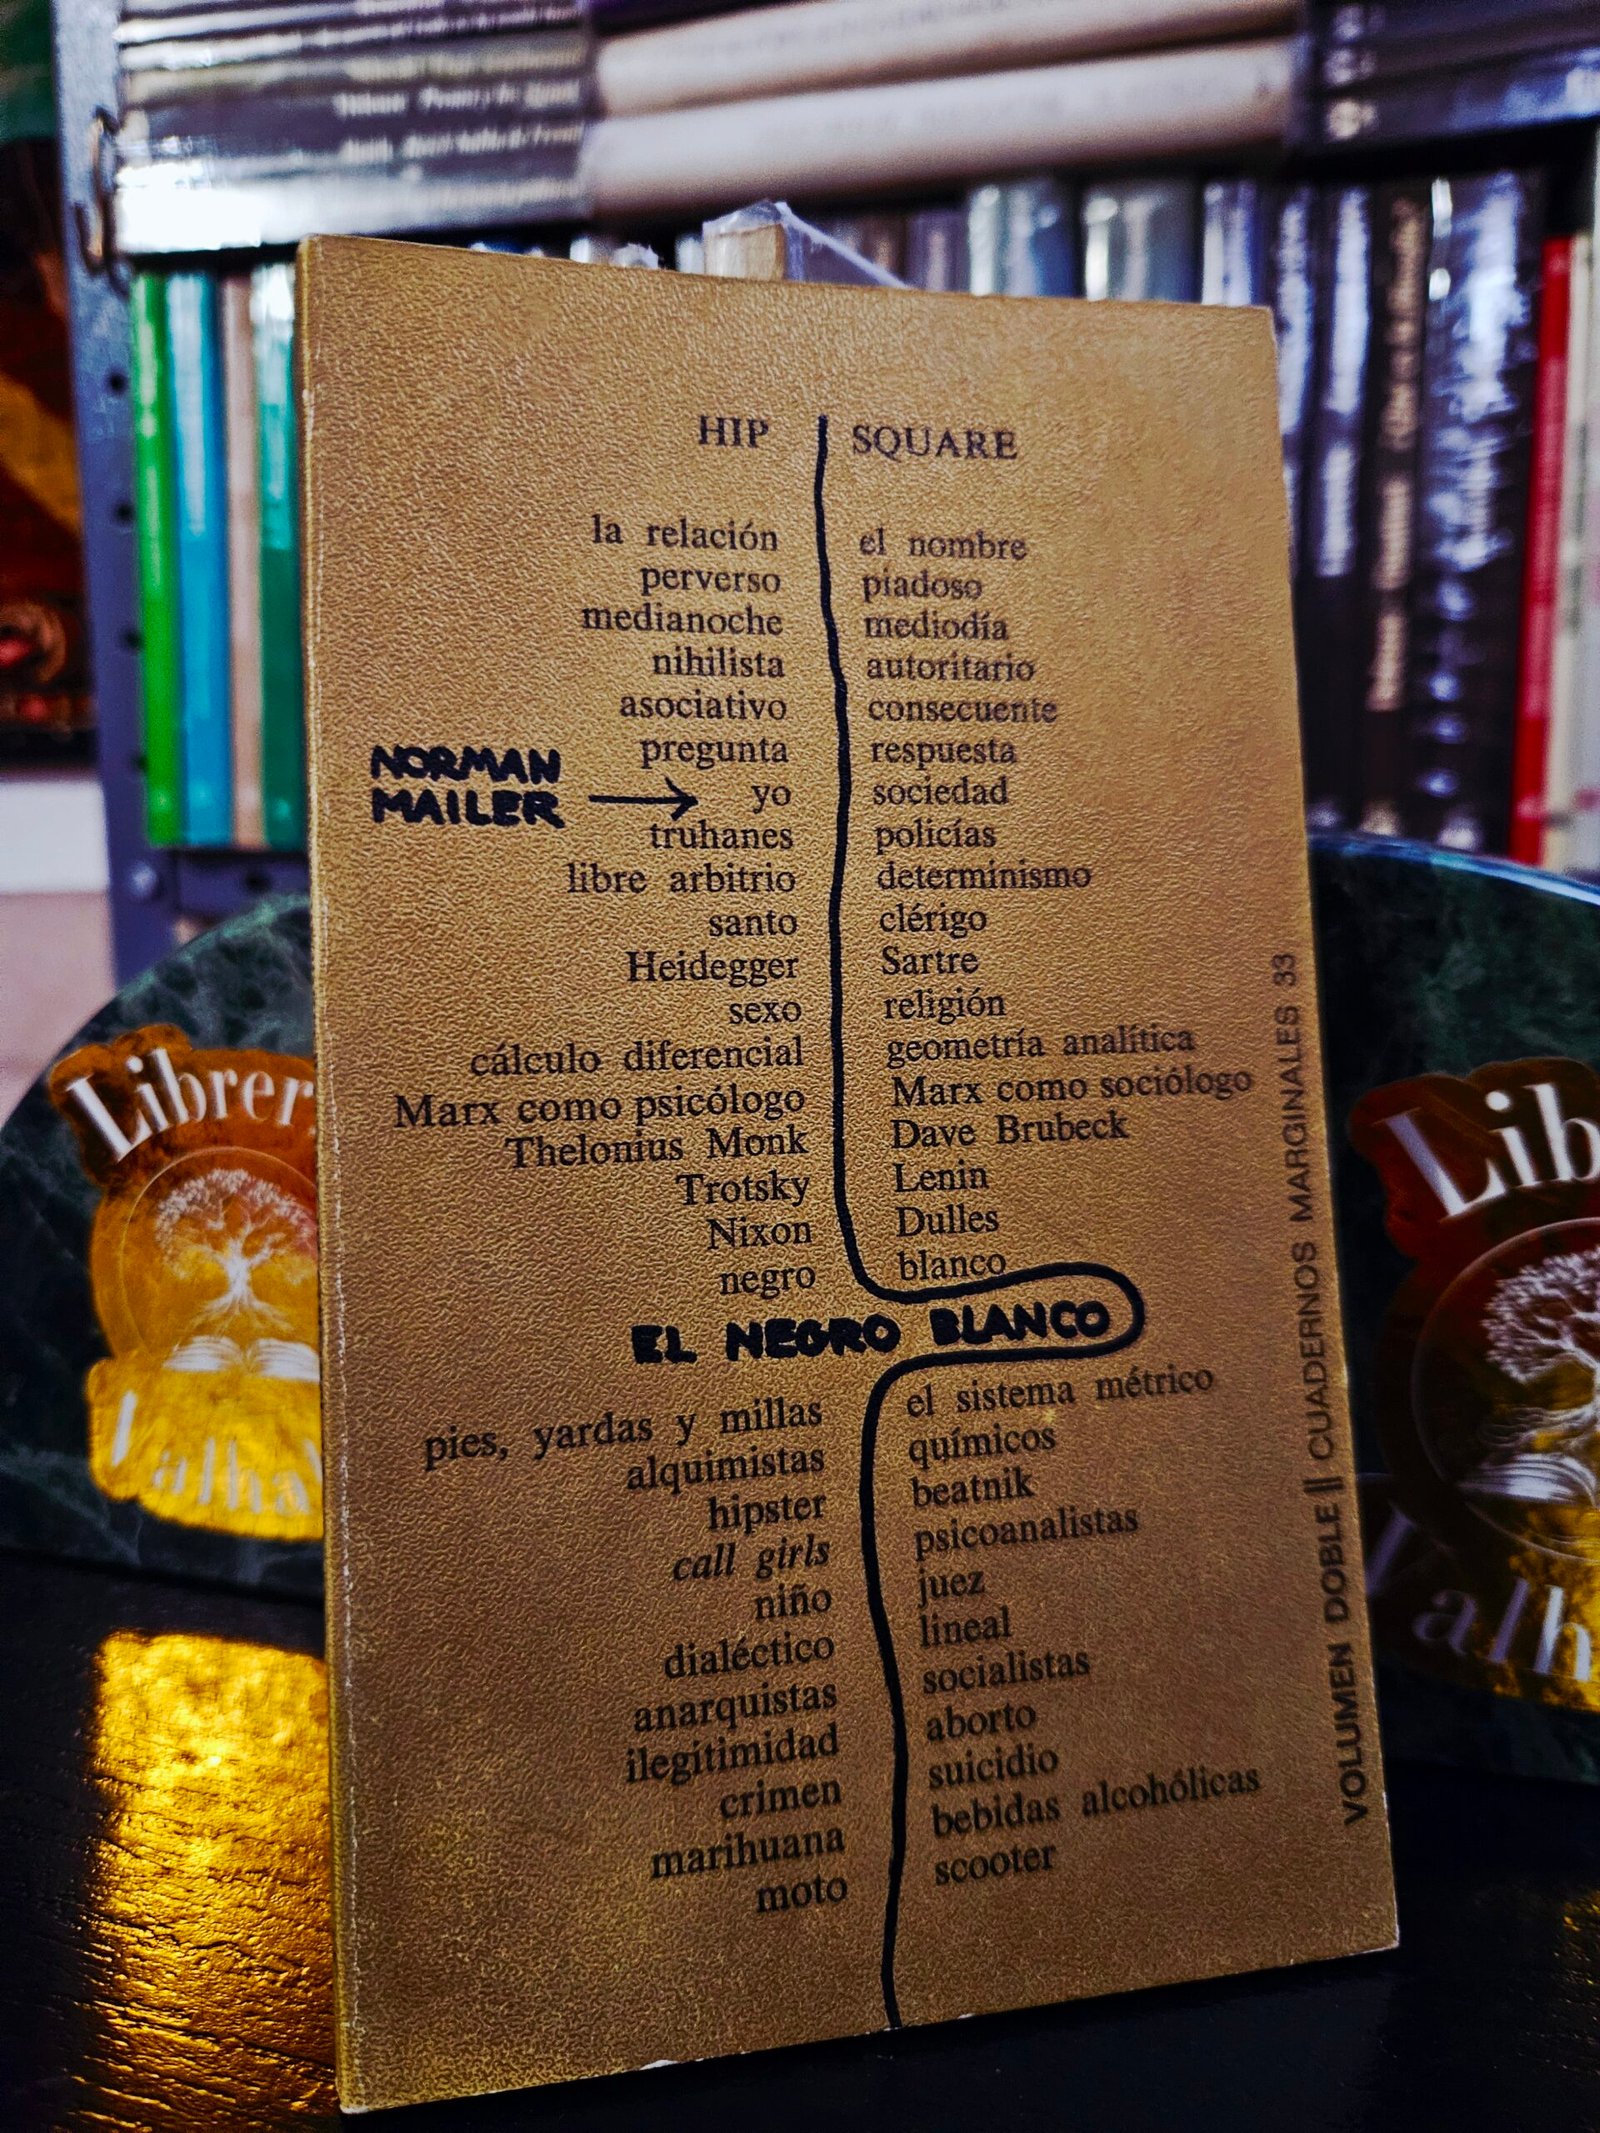 HIP SQUARE
la relación el nombre
perverso piadoso
medianoche mediodía
nihilista autoritario
asociativo consecuente
pregunta respuesta
NORMAN
MAILER → yo sociedad
truhanes policías
libre arbitrio determinismo
santo clérigo
Heidegger Sartre
sexo religión
cálculo diferencial geometría analítica
Marx como psicólogo Marx como sociólogo
Thelonius Monk Dave Brubeck
Trotsky Lenin
Nixon Dulles
negro blanco
EL NEGRO BLANCO
pies, yardas y millas el sistema métrico
alquimistas químicos
hipster beatnik
call girls psicoanalistas
niño juez
dialéctico lineal
anarquistas socialistas
ilegitimidad aborto
crimen suicidio
marihuana bebidas alcohólicas
moto scooter
VOLUMEN DOBLE || CUADERNOS MARGINALES 33
Librer
Valha
Lib
Valh